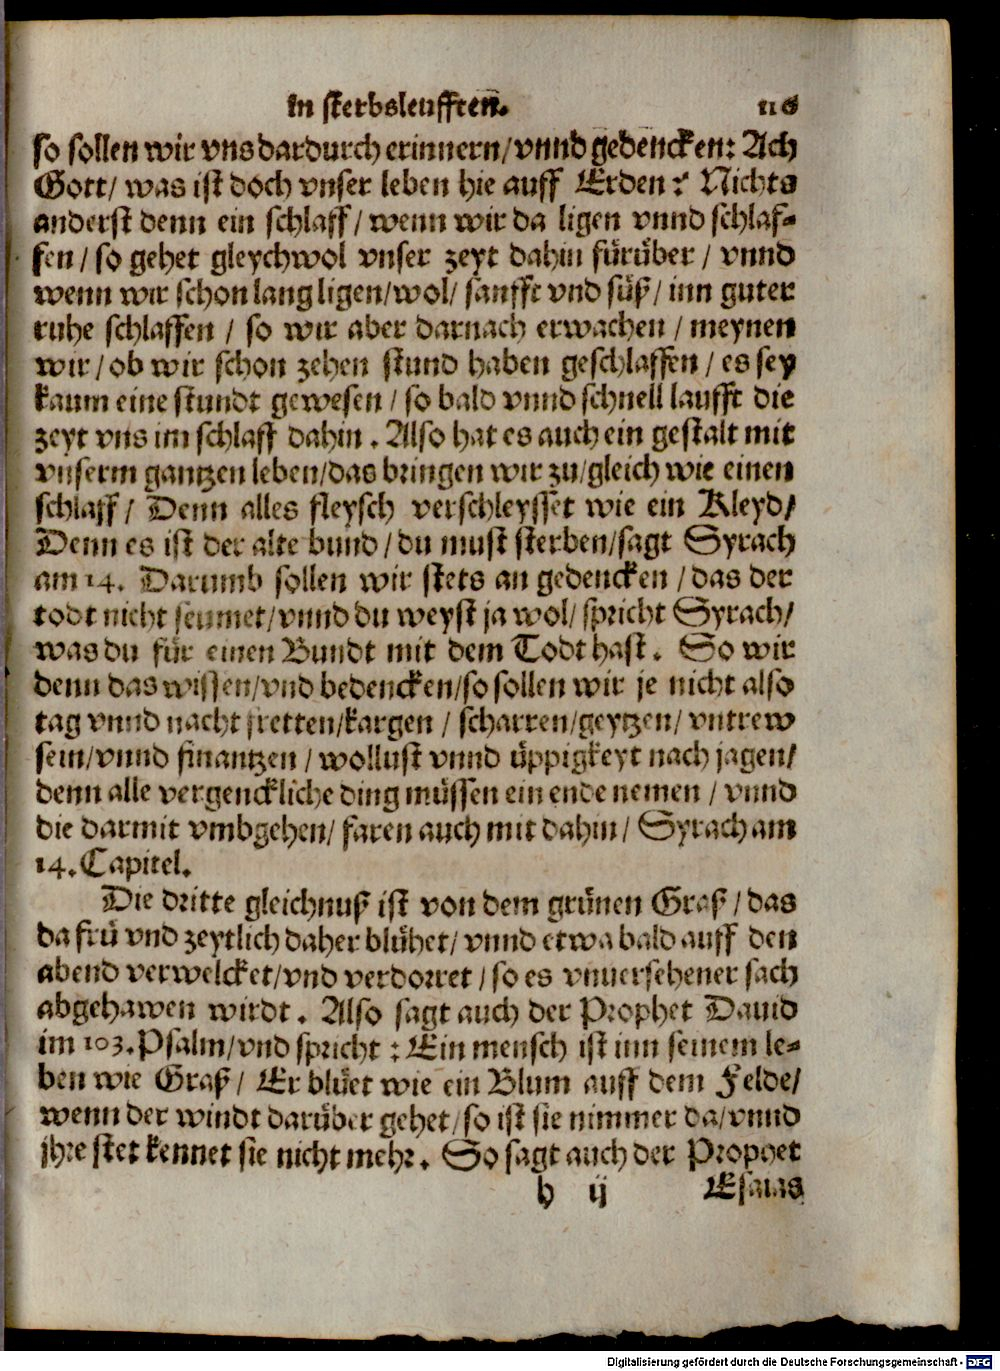 In sterbsleufften. 116
so sollen wir vns dardurch erinnern/vnnd gedencken: Ach
Gott/ was ist doch vnser leben hie auff Erden? Nichts
anderst denn ein schlaff/ wenn wir da ligen vnnd schlaf-
fen/ so gehet gleychwol vnser zeyt dahin fürüber/ vnnd
wenn wir schon lang ligen/wol/ sanfft vnd süß/ inn guter
ruhe schlaffen / so wir aber darnach erwachen / meynen
wir/ ob wir schon zehen stund haben geschlaffen/ es sey
kaum eine stundt gewesen / so bald vnnd schnell laufft die
zeyt vns im schlaff dahin. Also hat es auch ein gestalt mit
vnserm gantzen leben/das bringen wir zu/gleich wie einen
schlaff/ Denn alles fleysch verschleysset wie ein Kleyd/
Denn es ist der alte bund/du must sterben/sagt Syrach
am 14. Darumb sollen wir stets an gedencken/das der
todt nicht seumet/vnnd du weyst ja wol/ spricht Syrach/
was du für einen Bundt mit dem Todt hast. So wir
denn das wissen/vnd bedencken/so sollen wir je nicht also
tag vnnd nacht fretten/kargen / scharren/geytzen/ vntrew
sein/vnnd finantzen/ wollust vnnd üppigkeyt nach jagen/
denn alle vergenckliche ding müssen ein ende nemen / vnnd
die darmit vmbgehen/ faren auch mit dahin/ Syrach am
14. Capitel.
Die dritte gleichnuß ist von dem grünen Graß/das
da frü vnd zeytlich daher blühet/ vnnd etwa bald auff den
abend verwelcket/vnd verdorret/so es vnuersehener sach
abgehawen wirdt. Also sagt auch der Prophet Dauid
im 103. Psalm/vnd spricht: Ein mensch ist inn seinem le-
ben wie Graß/ Er blüet wie ein Blum auff dem Felde/
wenn der windt darüber gehet/so ist sie nimmer da/vnnd
jhre stet kennet sie nicht mehr. So sagt auch der Prophet
h ij Esaias
Digitalisierung gefördert durch die Deutsche Forschungsgemeinschaft - DFG